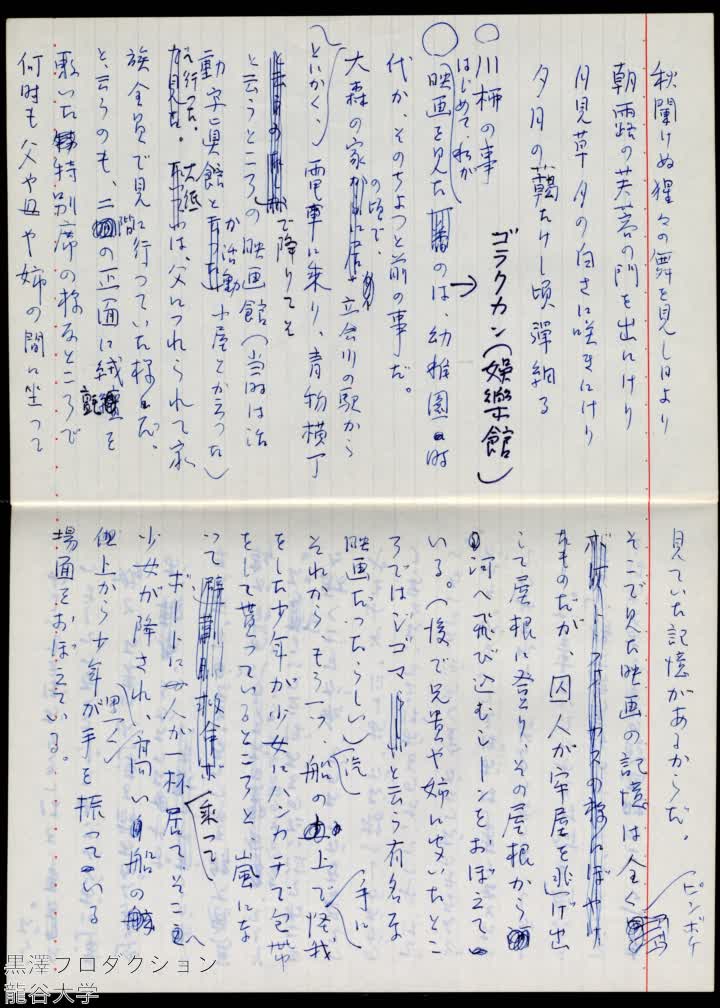 秋闌けぬ猩々の舞を見し日より
朝露の芙蓉の門を出にけり
月見草夕の白さに咲きにけり
夕月の藹たけし頃弾初る
川柄の事
ゴラクカン(娯楽館)
はじめて、わが
映画を見たのは、幼稚園時
代か、そのちょっと前の事だ。
大森の家の頃で、立会川の駅から
といかく、電車に乗り、青物横丁
で降りてそ
と云うところの映画館(当時は活
動写真館とか活動小屋とか云った)
へ行った。大抵
は、父につれられて家
族全員で見に行っていた様だ、
と、云うのも、二階の正面に絨毯を
敷いた特別席の様なところで
何時も父や母や姉の間に坐って
見ていた記憶があるからだ。
そこで見た映画の記憶は全く
ピンボケ
なものだが、囚人が牢屋を逃げ出
して屋根に登り、その屋根から
河へ飛び込むシーンをおぼえて
いる。(後で兄貴や姉に聞いたとこ
ろではジゴマと云う有名な
映画だったらしい)
それからもう一つ、船の上で怪我
をした少年が少女にハンカチで包帯
手に
をして貰っているところと 嵐にな
って
乗って
ボートに人が一杯居て、そこへ
少女が降され、傾い船の
上から少年が手を振っている
場面をおぼえている。
黒澤プロダクション
龍谷大学